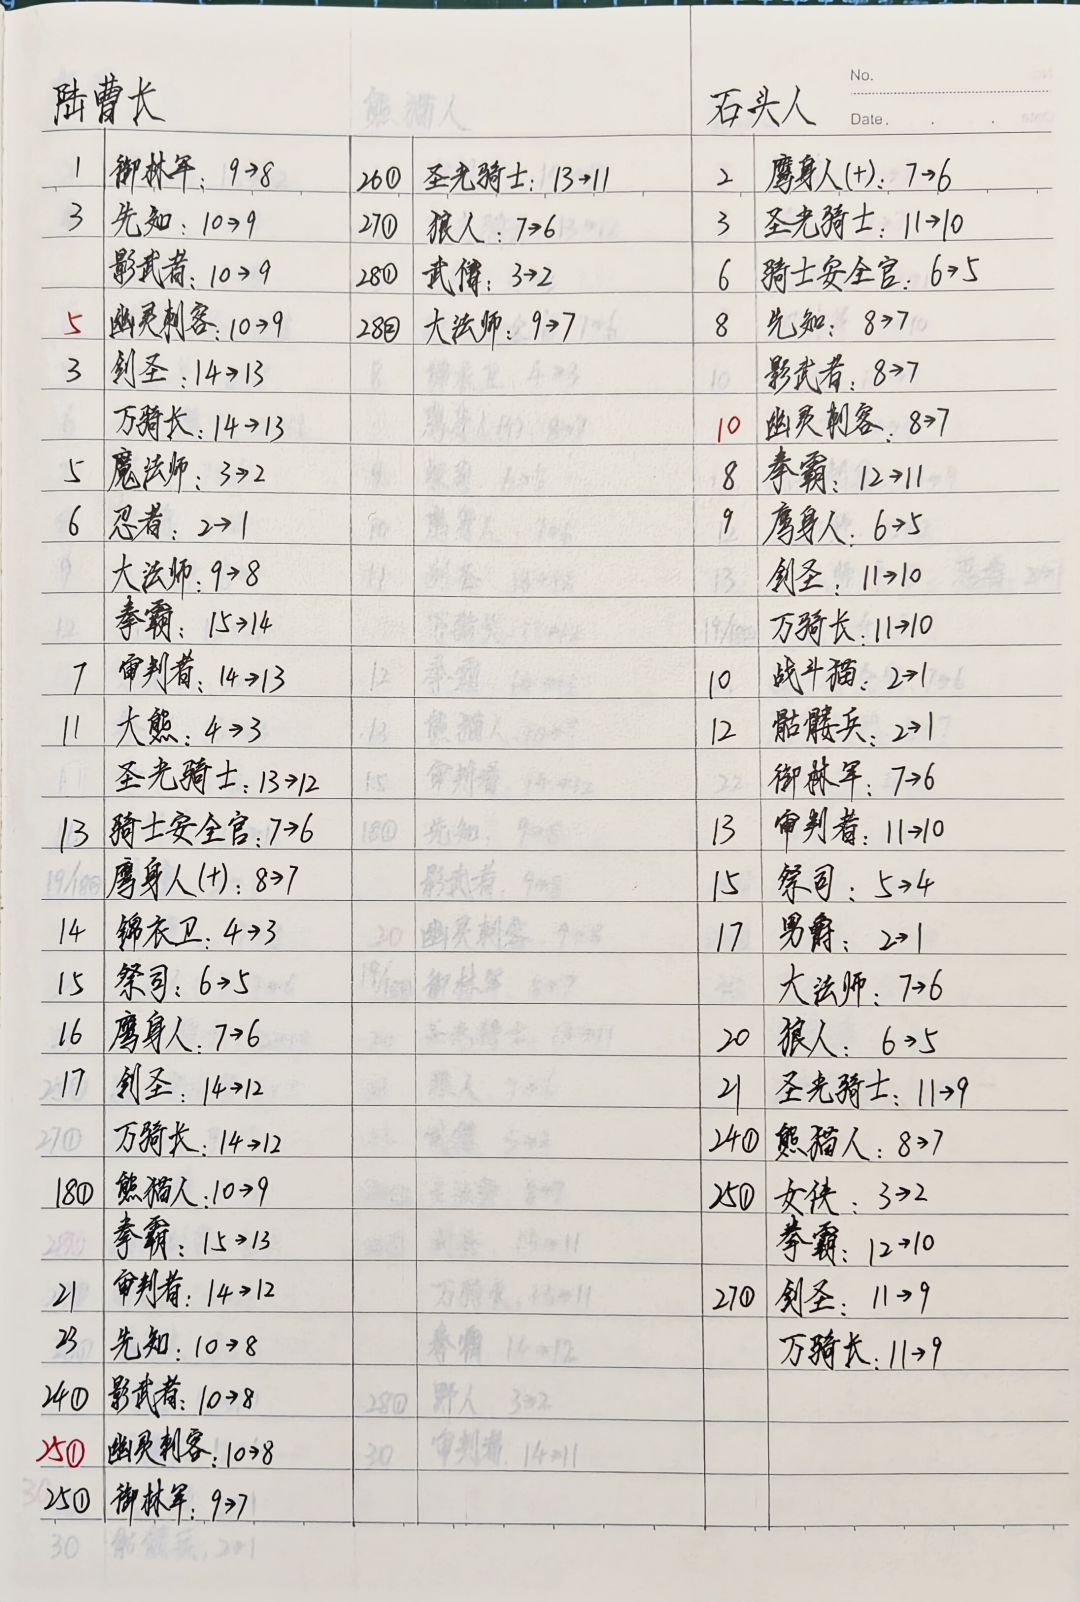 No.
Date.
陆曹长
1 御林军：9→8
3 先知：10→9
影武者：10→9
5 幽灵刺客：10→9
3 剑圣：14→13
万骑长：14→13
5 魔法师：3→2
6 忍者：2→1
大法师：9→8
拳霸：15→14
7 审判者：14→13
11 大熊：4→3
圣光骑士：13→12
13 骑士安全官：7→6
鹰身人(+)：8→7
14 锦衣卫：4→3
15 祭司：6→5
16 鹰身人：7→6
17 剑圣：14→12
万骑长：14→12
18① 熊猫人：10→9
拳霸：15→13
21 审判者：14→12
23 先知：10→8
24① 影武者：10→8
25① 幽灵刺客：10→8
25① 御林军：9→7
26① 圣光骑士：13→11
27① 狼人：7→6
28① 武僧：3→2
28回 大法师：9→7
石头人
2 鹰身人(+)：7→6
3 圣光骑士：11→10
6 骑士安全官：6→5
8 先知：8→7
影武者：8→7
10 幽灵刺客：8→7
8 拳霸：12→11
9 鹰身人：6→5
剑圣：11→10
万骑长：11→10
10 战斗猫：2→1
12 骷髅兵：2→1
御林军：7→6
13 审判者：11→10
15 祭司：5→4
17 男爵：2→1
大法师：7→6
20 狼人：6→5
21 圣光骑士：11→9
24① 熊猫人：8→7
25① 女侠：3→2
拳霸：12→10
27① 剑圣：11→9
万骑长：11→9